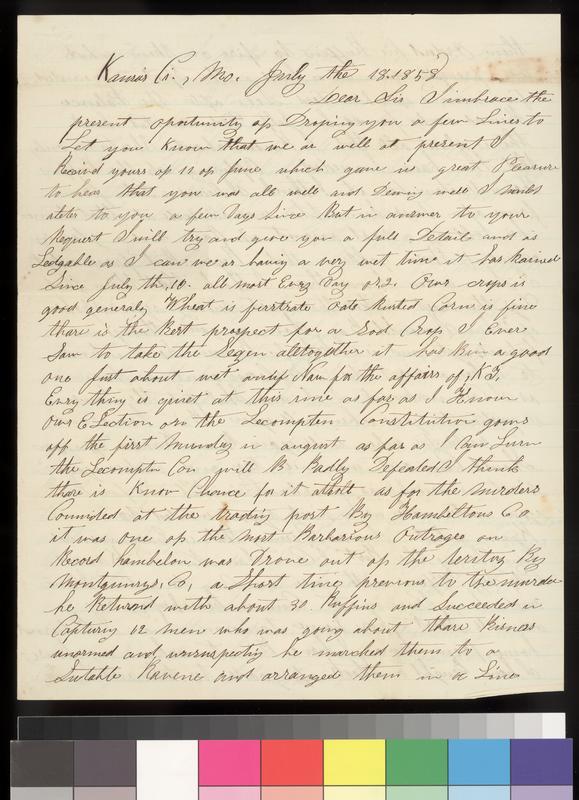 Kansas Ci., Mo. July the 18. 1858
Dear Sir I imbrace the
present oportunity of Droping you a few Lines to
Let you Know that we ar well at present I
Receivd yours of 12 of June which gave us great Pleasure
to hear that you was all well and Dowing well I
a leter to you a few Days Since But in answer to your
Request I will try and give you a full Detail and as
as I can we ar having a very wet time it has Rained
Since July th, 10. all most Evry Day or 2. Owr crops is
good generaly Wheat is Oats Rusted Corn is fine
thare is the Best prospect for a God Crop I Ever
Saw to take the Segen altogether it has Bin a good
one Just about wet anuf Now for the affairs of K.T.
Evry thing is quiet at this time as far as I Know
Owr Election on the Lecompton Constitution gows
off the first Munday in august as far as I can Lurn
the Lecompton Con will B Badly Defeated I think
thare is Know Chance for it atall as for the murders
Comited at the trading post By Hambeltons Co
it was one of the most Barbarious Outrages on
Record hambelon was Drove out of the teritory By
Montgumrys, Co, a Short time previous to the murder
he Returnd with about 30 Ruffins and Succeeded in
Capturing 12 men who was going about thare Bisness
unarmed and unsuspecting he marched them to a
Sutable Ravene and arranged them in a Line